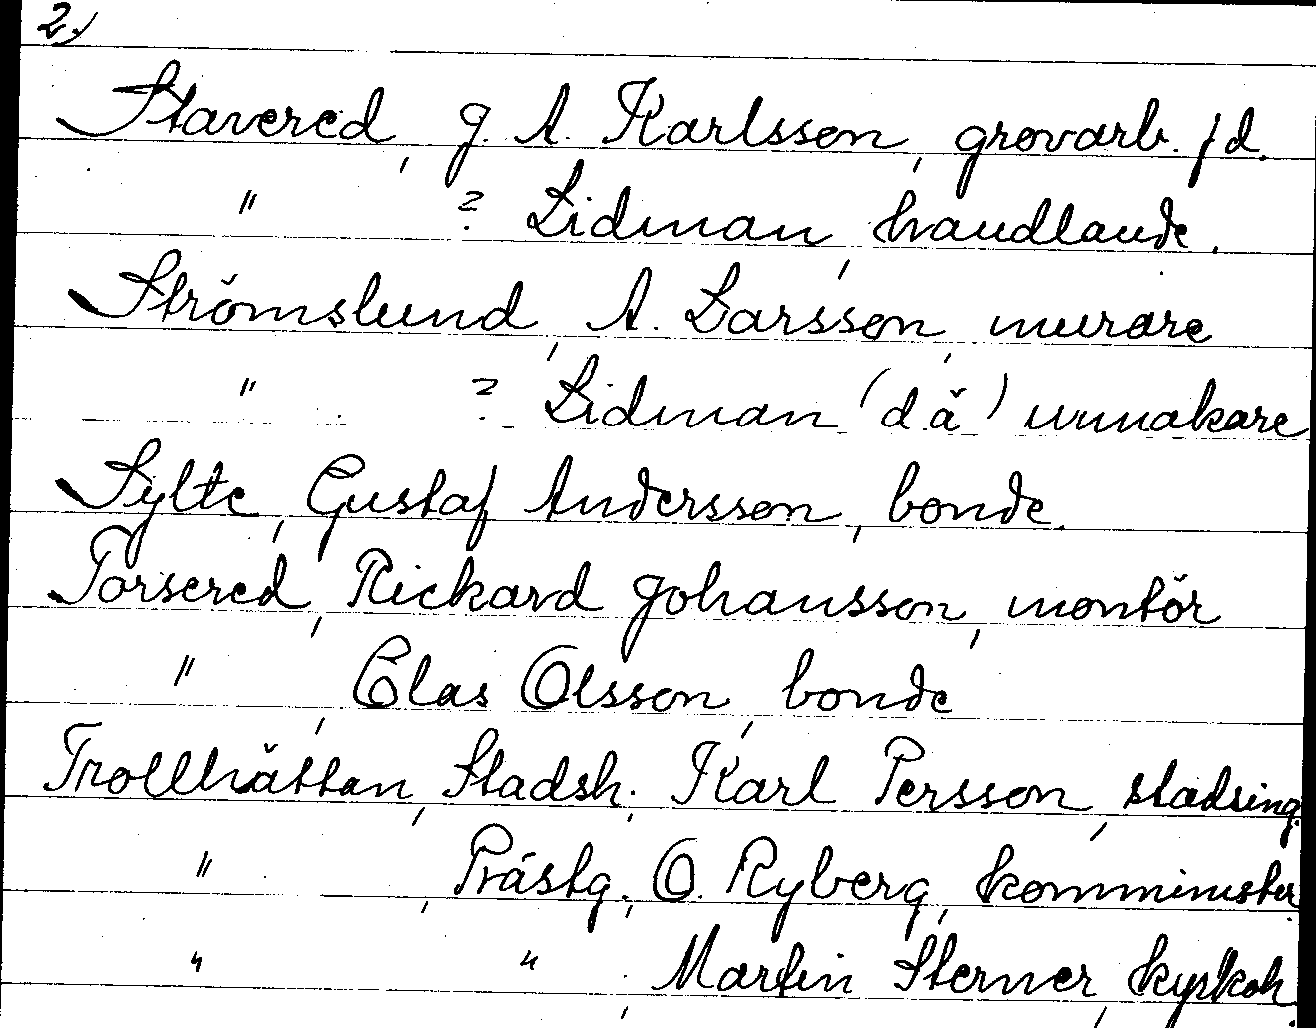 2.)
Stavered, J. A. Karlsson, grovarb. f d.
" ? Lidman, handlande.
Strömslund, A. Larsson, murare
" ? Lidman (d ä) urmakare
Sylte, Gustaf Andersson, bonde.
Torsered, Rickard Johansson, montör
" , Clas Olsson, bonde
Trollhättan, Stadsh. Karl Persson, stadsing.
" , Prästg., O. Ryberg, komminister.
" " , Martin Sterner, kyrkoh.